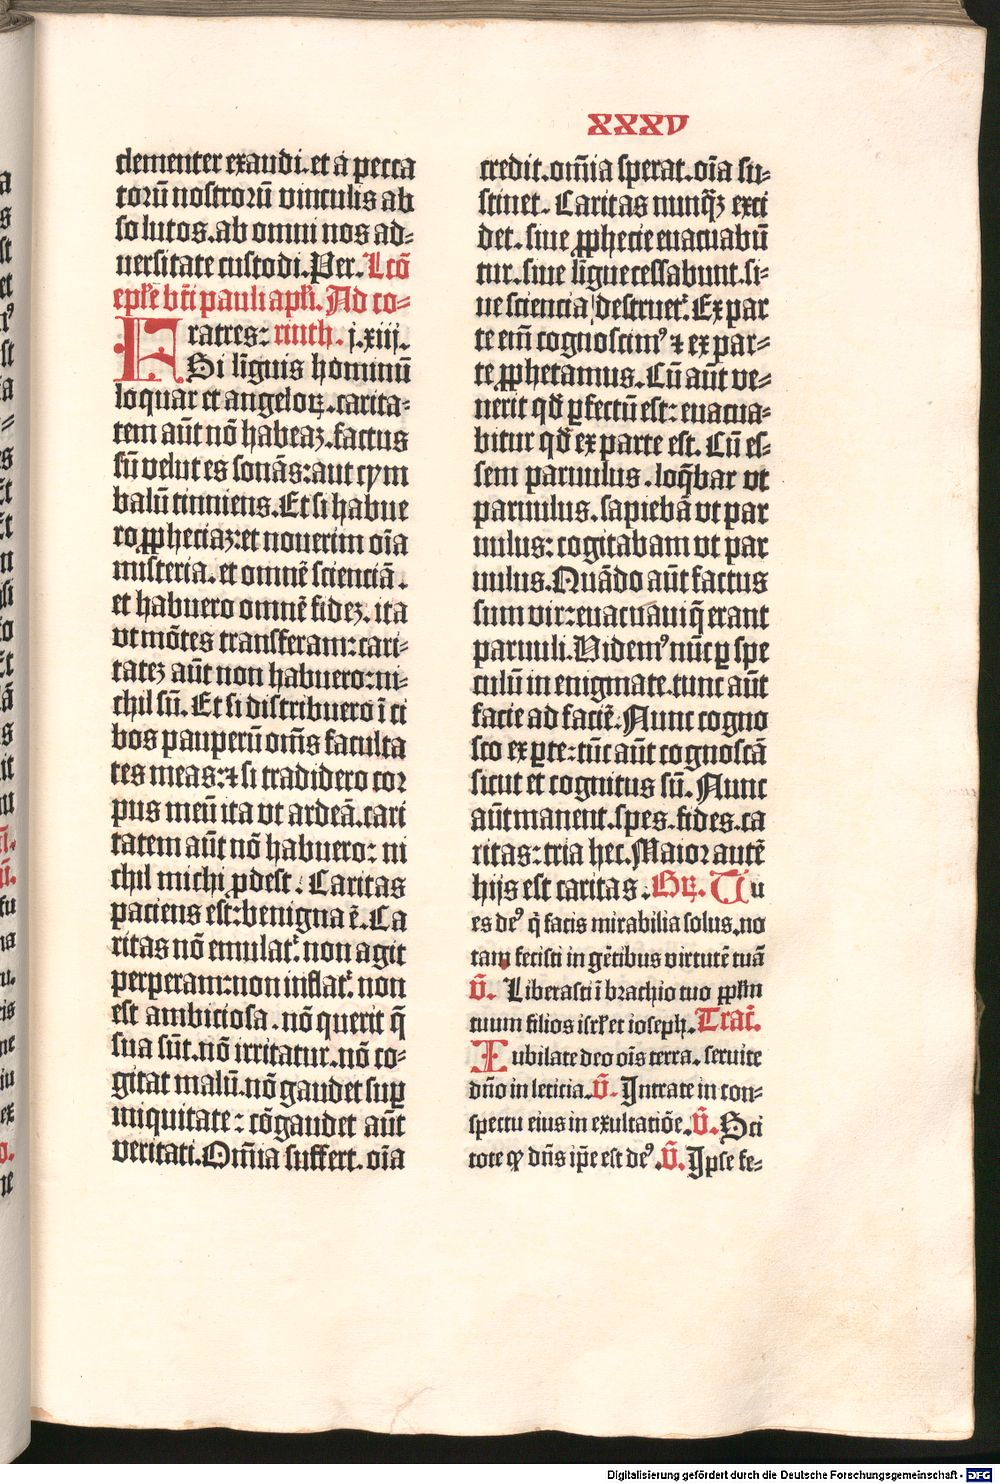 xxxv
clementer exaudi. et a pecca
torū nostrorū vinculis ab
solutos. ab omni nos ad⸗
uersitate custodi. Per. Lcō
epl̄e bt̄i pauli apl̄i. Ad co⸗
Fratres: rinth. j. xiij.
Si līguis hominū
loquar et angeloꝝ. carita⸗
tem aūt nō habeaꝫ. factus
sū velut es sonās: aut cym
balū tinniens. Et si habue
ro ꝓpheciaꝫ: et nouerim oīa
misteria. et omnē scienciā.
et habuero omnē fideꝫ. ita
vt mōtes transferam: cari⸗
tateꝫ aūt non habuero: ni⸗
chil sū. Et si distribuero ī ci
bos pauperū om̄s faculta
tes meas: ⁊ si tradidero cor
pus meū ita vt ardeā. cari
tatem aūt nō habuero: ni
chil michi ꝓdest. Caritas
paciens est: benigna ē. Ca
ritas nō emulat᷑. non agit
perperam: non inflat᷑. non
est ambiciosa. nō querit q̄
sua sūt. nō irritatur. nō co⸗
gitat malū. nō gaudet suꝑ
iniquitate: cōgaudet aūt
veritati. Om̄ia suffert. oīa
credit. om̄ia sperat. oīa su⸗
stinet. Caritas nunq̄ꝫ exci
det. siue ꝓphecie euacuabū
tur. siue līgue cessabunt. si⸗
ue sciencia destruet᷑. Ex par
te em̄ cognoscimꝰ ⁊ ex par⸗
te ꝓphetamus. Cū aūt ve⸗
nerit qd̄ ꝑfectū est: euacua⸗
bitur qd̄ ex parte est. Cū es⸗
sem paruulus. loq̄bar vt
paruulus. sapiebā vt par
uulus: cogitabam vt par
uulus. Quādo aūt factus
sum vir: euacuaui q̄ erant
paruuli. Videmꝰ nūc ꝑ spe
culū in enigmate. tunc aūt
facie ad faciē. Nunc cogno
sco ex ꝑte: tūc aūt cognoscā
sicut et cognitus sū. Nunc
aūt manent. spes. fides. ca
ritas: tria hec. Maior autē
hijs est caritas. Gꝝ. Tu
es deꝰ q̄ facis mirabilia solus. no
tam fecisti in gētibus virtutē tuā
v̄. Liberasti ī brachio tuo ppl̄m
tuum filios isrl̄ et ioseph. Tract̄.
Iubilate deo oīs terra. seruite
dn̄o in leticia. v̄. Intrate in con⸗
spectu eius in exultatiōe. v̄. Sci
tote ꝙ dn̄s ip̄e est deꝰ. v̄. Ipse fe⸗
Digitalisierung gefördert durch die Deutsche Forschungsgemeinschaft - DFG